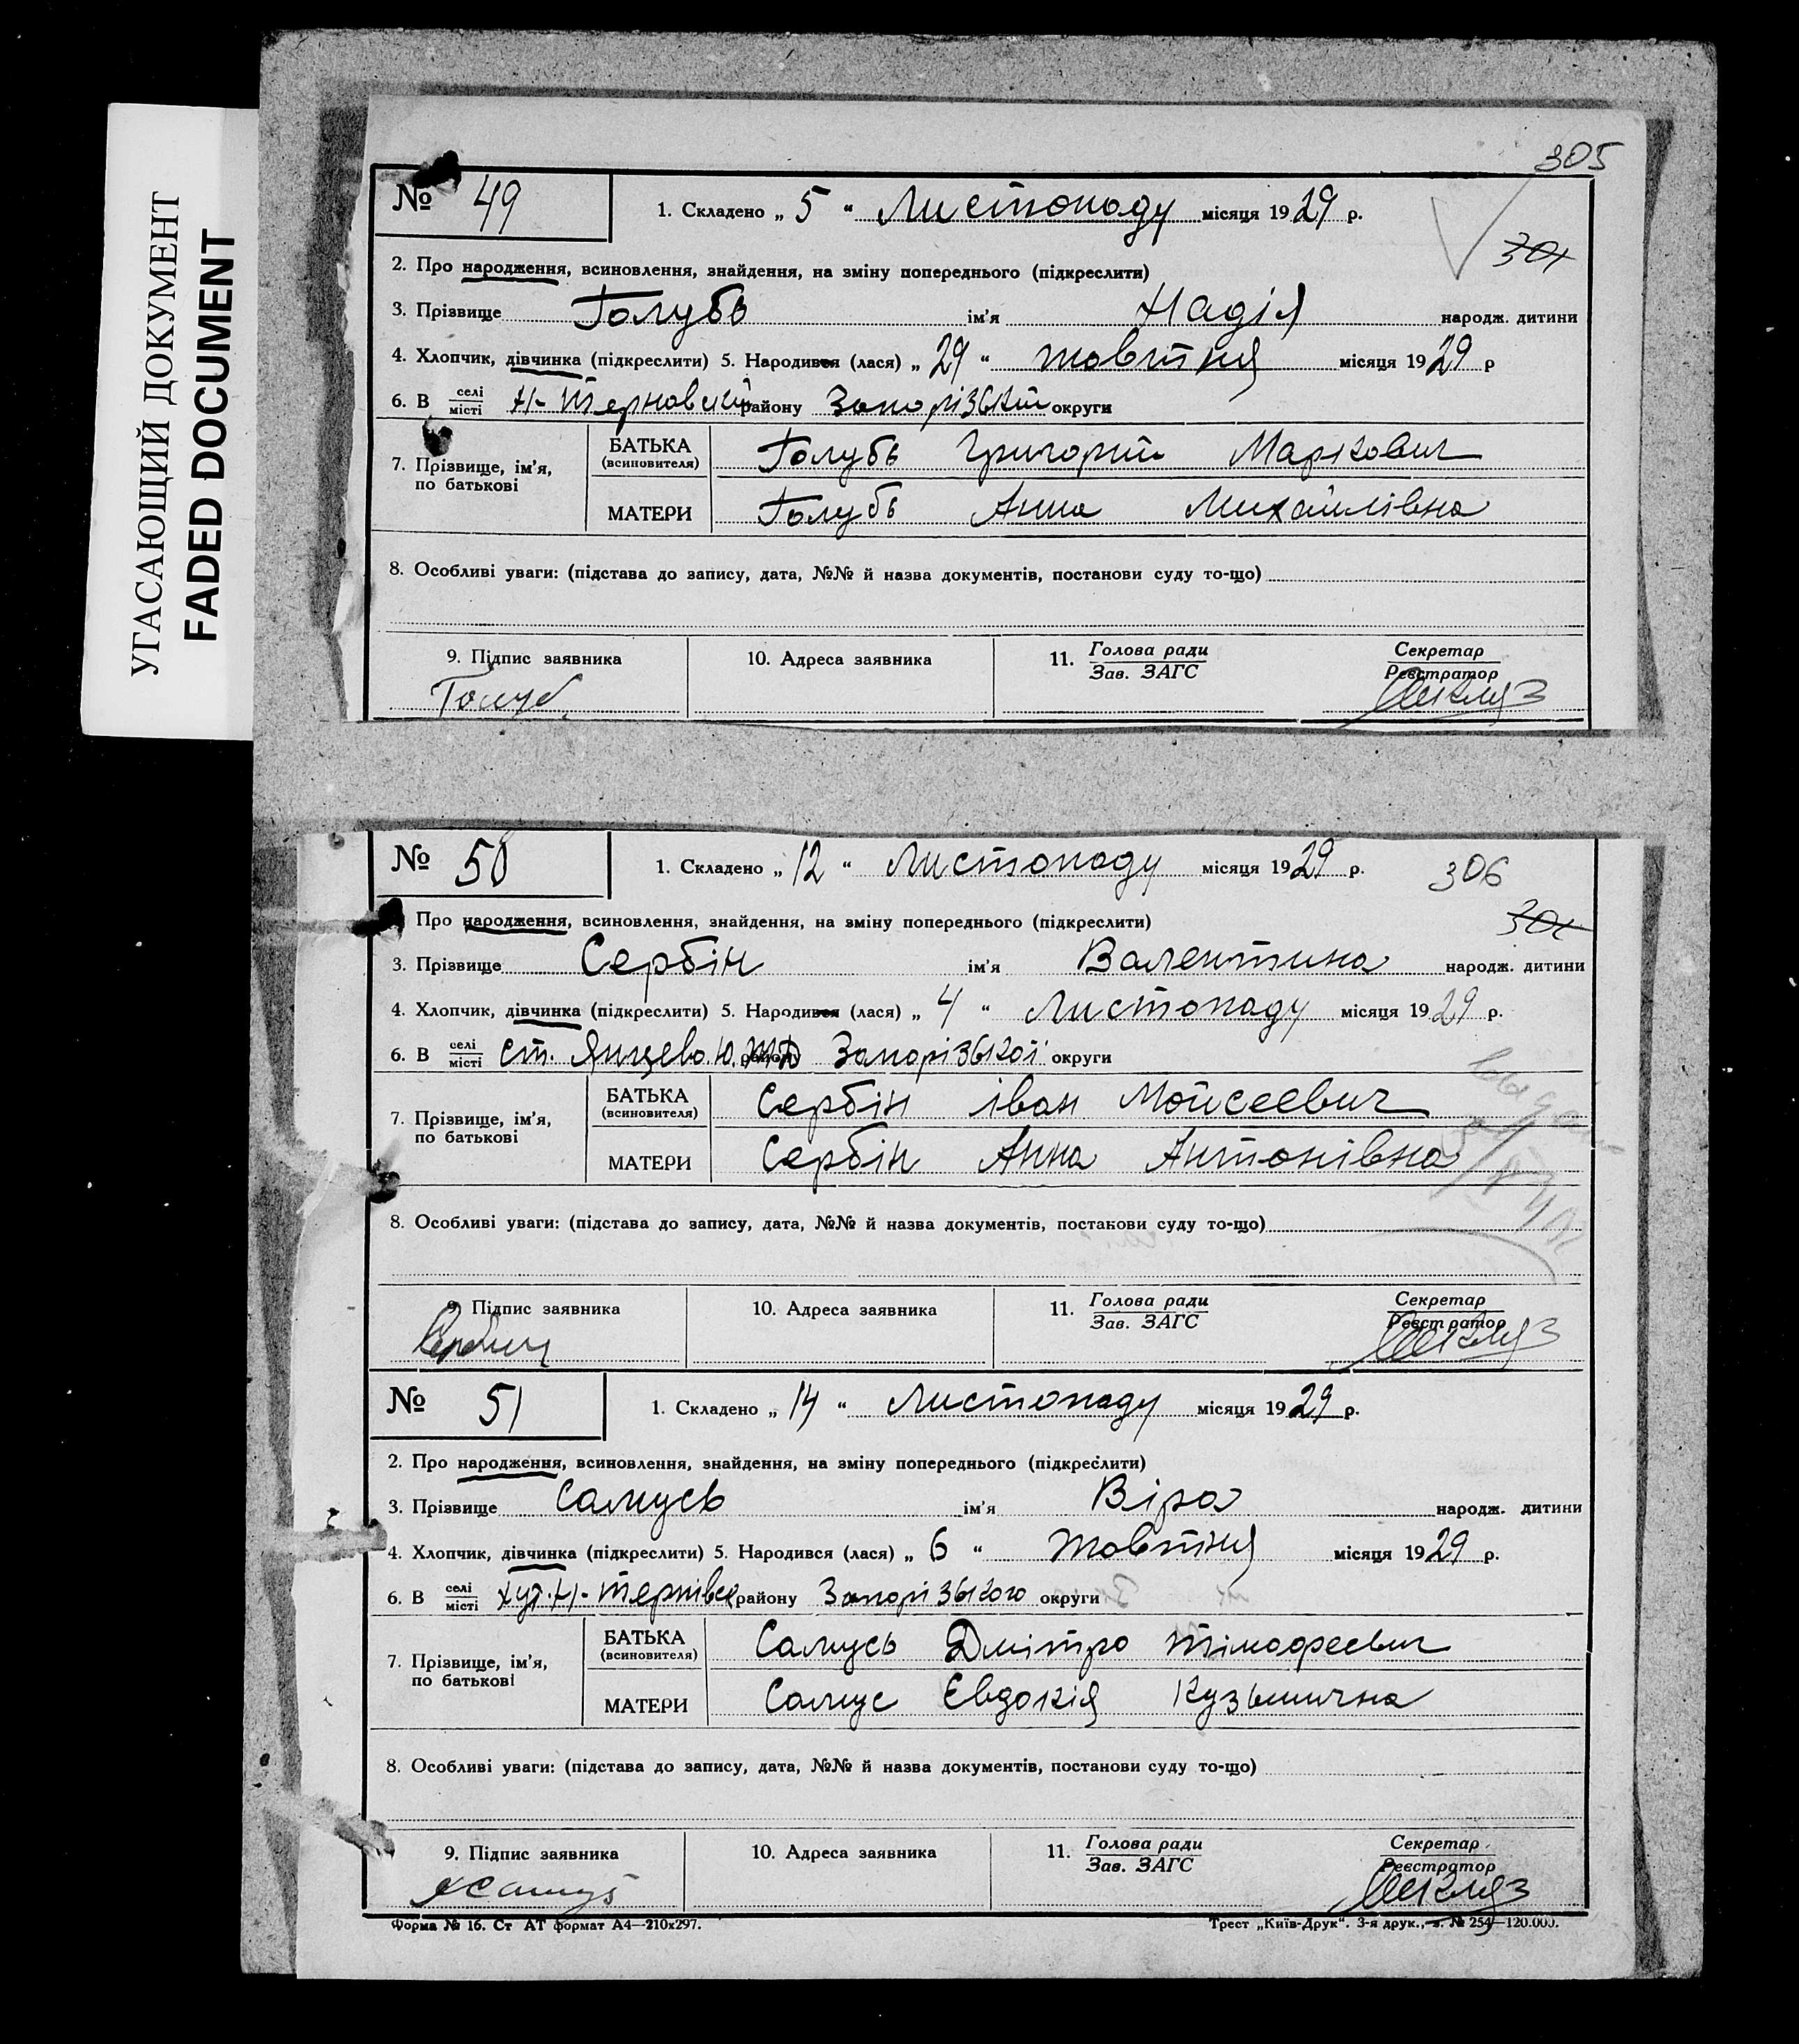 УГАСАЮЩИЙ ДОКУМЕНТ
FADED DOCUMENT
305
№ 49
1. Складено „ 5 “ Листопаду місяця 1929 р.
301
2. Про народження, всиновлення, знайдення, на зміну попереднього (підкреслити)
3. Прізвище Голубь ім'я Надія народж. дитини
4. Хлопчик, дівчинка (підкреслити) 5. Народився (лася) „ 29 “ жовтня місяця 1929 р
6. В селі місті Н-Терновсий району Запорізький округи
7. Прізвище, ім'я, по батькові
БАТЬКА (всиновителя) Голубь Григорий Маркович
МАТЕРИ Голубь Анна Михайлівна
8. Особливі уваги: (підстава до запису, дата, №№ й назва документів, постанови суду то-що)
9. Підпис заявника
10. Адреса заявника
11. Голова ради Зав. ЗАГС
Секретар Реєстратор
Голуб
№ 50
1. Складено „ 12 “ Листопаду місяця 1929 р.
306
Про народження, всиновлення, знайдення, на зміну попереднього (підкреслити)
3. Прізвище Сербін ім'я Валентина народж. дитини
4. Хлопчик, дівчинка (підкреслити) 5. Народився (лася) „ 4 “ Листопаду місяця 1929 р.
6. В селі місті ст. Янцево Ю.ЖД району Запорізької округи
7. Прізвище, ім'я, по батькові
БАТЬКА (всиновителя) Сербін іван Мойсеевич
МАТЕРИ Сербін Анна Антонівна
8. Особливі уваги: (підстава до запису, дата, №№ й назва документів, постанови суду то-що)
9. Підпис заявника
10. Адреса заявника
11. Голова ради Зав. ЗАГС
Секретар Реєстратор
№ 51
1. Складено „ 14 “ Листопаду місяця 1929 р.
2. Про народження, всиновлення, знайдення, на зміну попереднього (підкреслити)
3. Прізвище Самусь ім'я Віра народж. дитини
4. Хлопчик, дівчинка (підкреслити) 5. Народився (лася) „ 6 “ Жовтня місяця 1929 р.
6. В селі місті хут. Н-Тернівск району Запорізького округи
7. Прізвище, ім'я, по батькові
БАТЬКА (всиновителя) Самусь Дмітро Тімофеевич
МАТЕРИ Самус Євдокія Кузьмична
8. Особливі уваги: (підстава до запису, дата, №№ й назва документів, постанови суду то-що)
9. Підпис заявника
10. Адреса заявника
11. Голова ради Зав. ЗАГС
Секретар Реєстратор
Форма № 16. Ст АТ формат А4—210х297.
Трест „Київ-Друк“. 3-я друк., з. № 254—120.000.